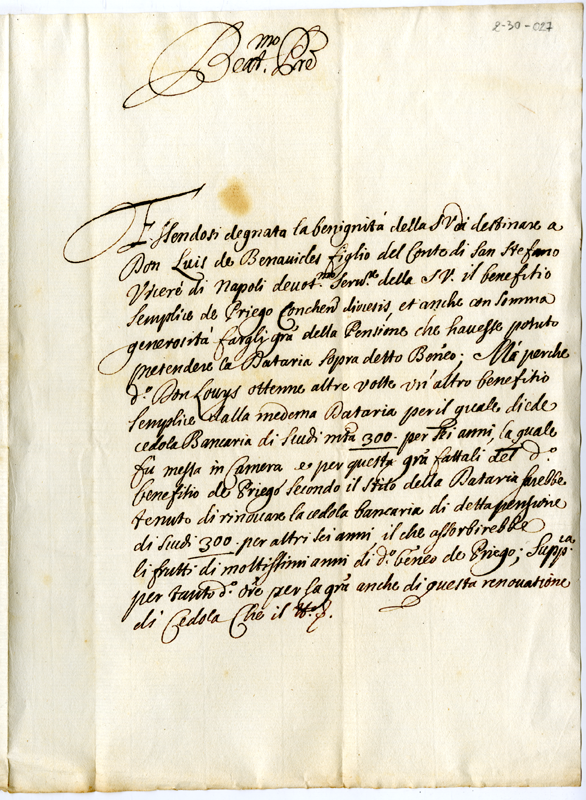 2-30-027
Beat.mo Pre
Essendosi degnata la benignità della SV di destinare a
Don Luis de Benauides figlio del Conte di San Stefano
Vicerè di Napoli deuot.mo Seru.re della SV. il benefitio
semplice de Priego Conchen diocesis, et anche con somma
generosità fargli gra della Pensione che hauesse potuto
pretendere la Dataria sopra detto Beneo; Mà perche
d.o Don Louys ottenne altre volte vn'altro benefitio
semplice dalla medema Dataria per il quale diede
cedola Bancaria di Scudi mta 300. per sei anni, la quale
fu messa in Camera e per questa gra fattali del d.o
benefitio de Priego secondo il stilo della Dataria sarebbe
tenuto di rinouare la cedola bancaria di detta pensione
di scudi 300. per altri sei anni il che assorbirebbe
li frutti di moltissimi anni di d.o beneo de Priego; Supp.ca
per tanto d.o Ore per la gra anche di questa renouatione
di Cedola Che il